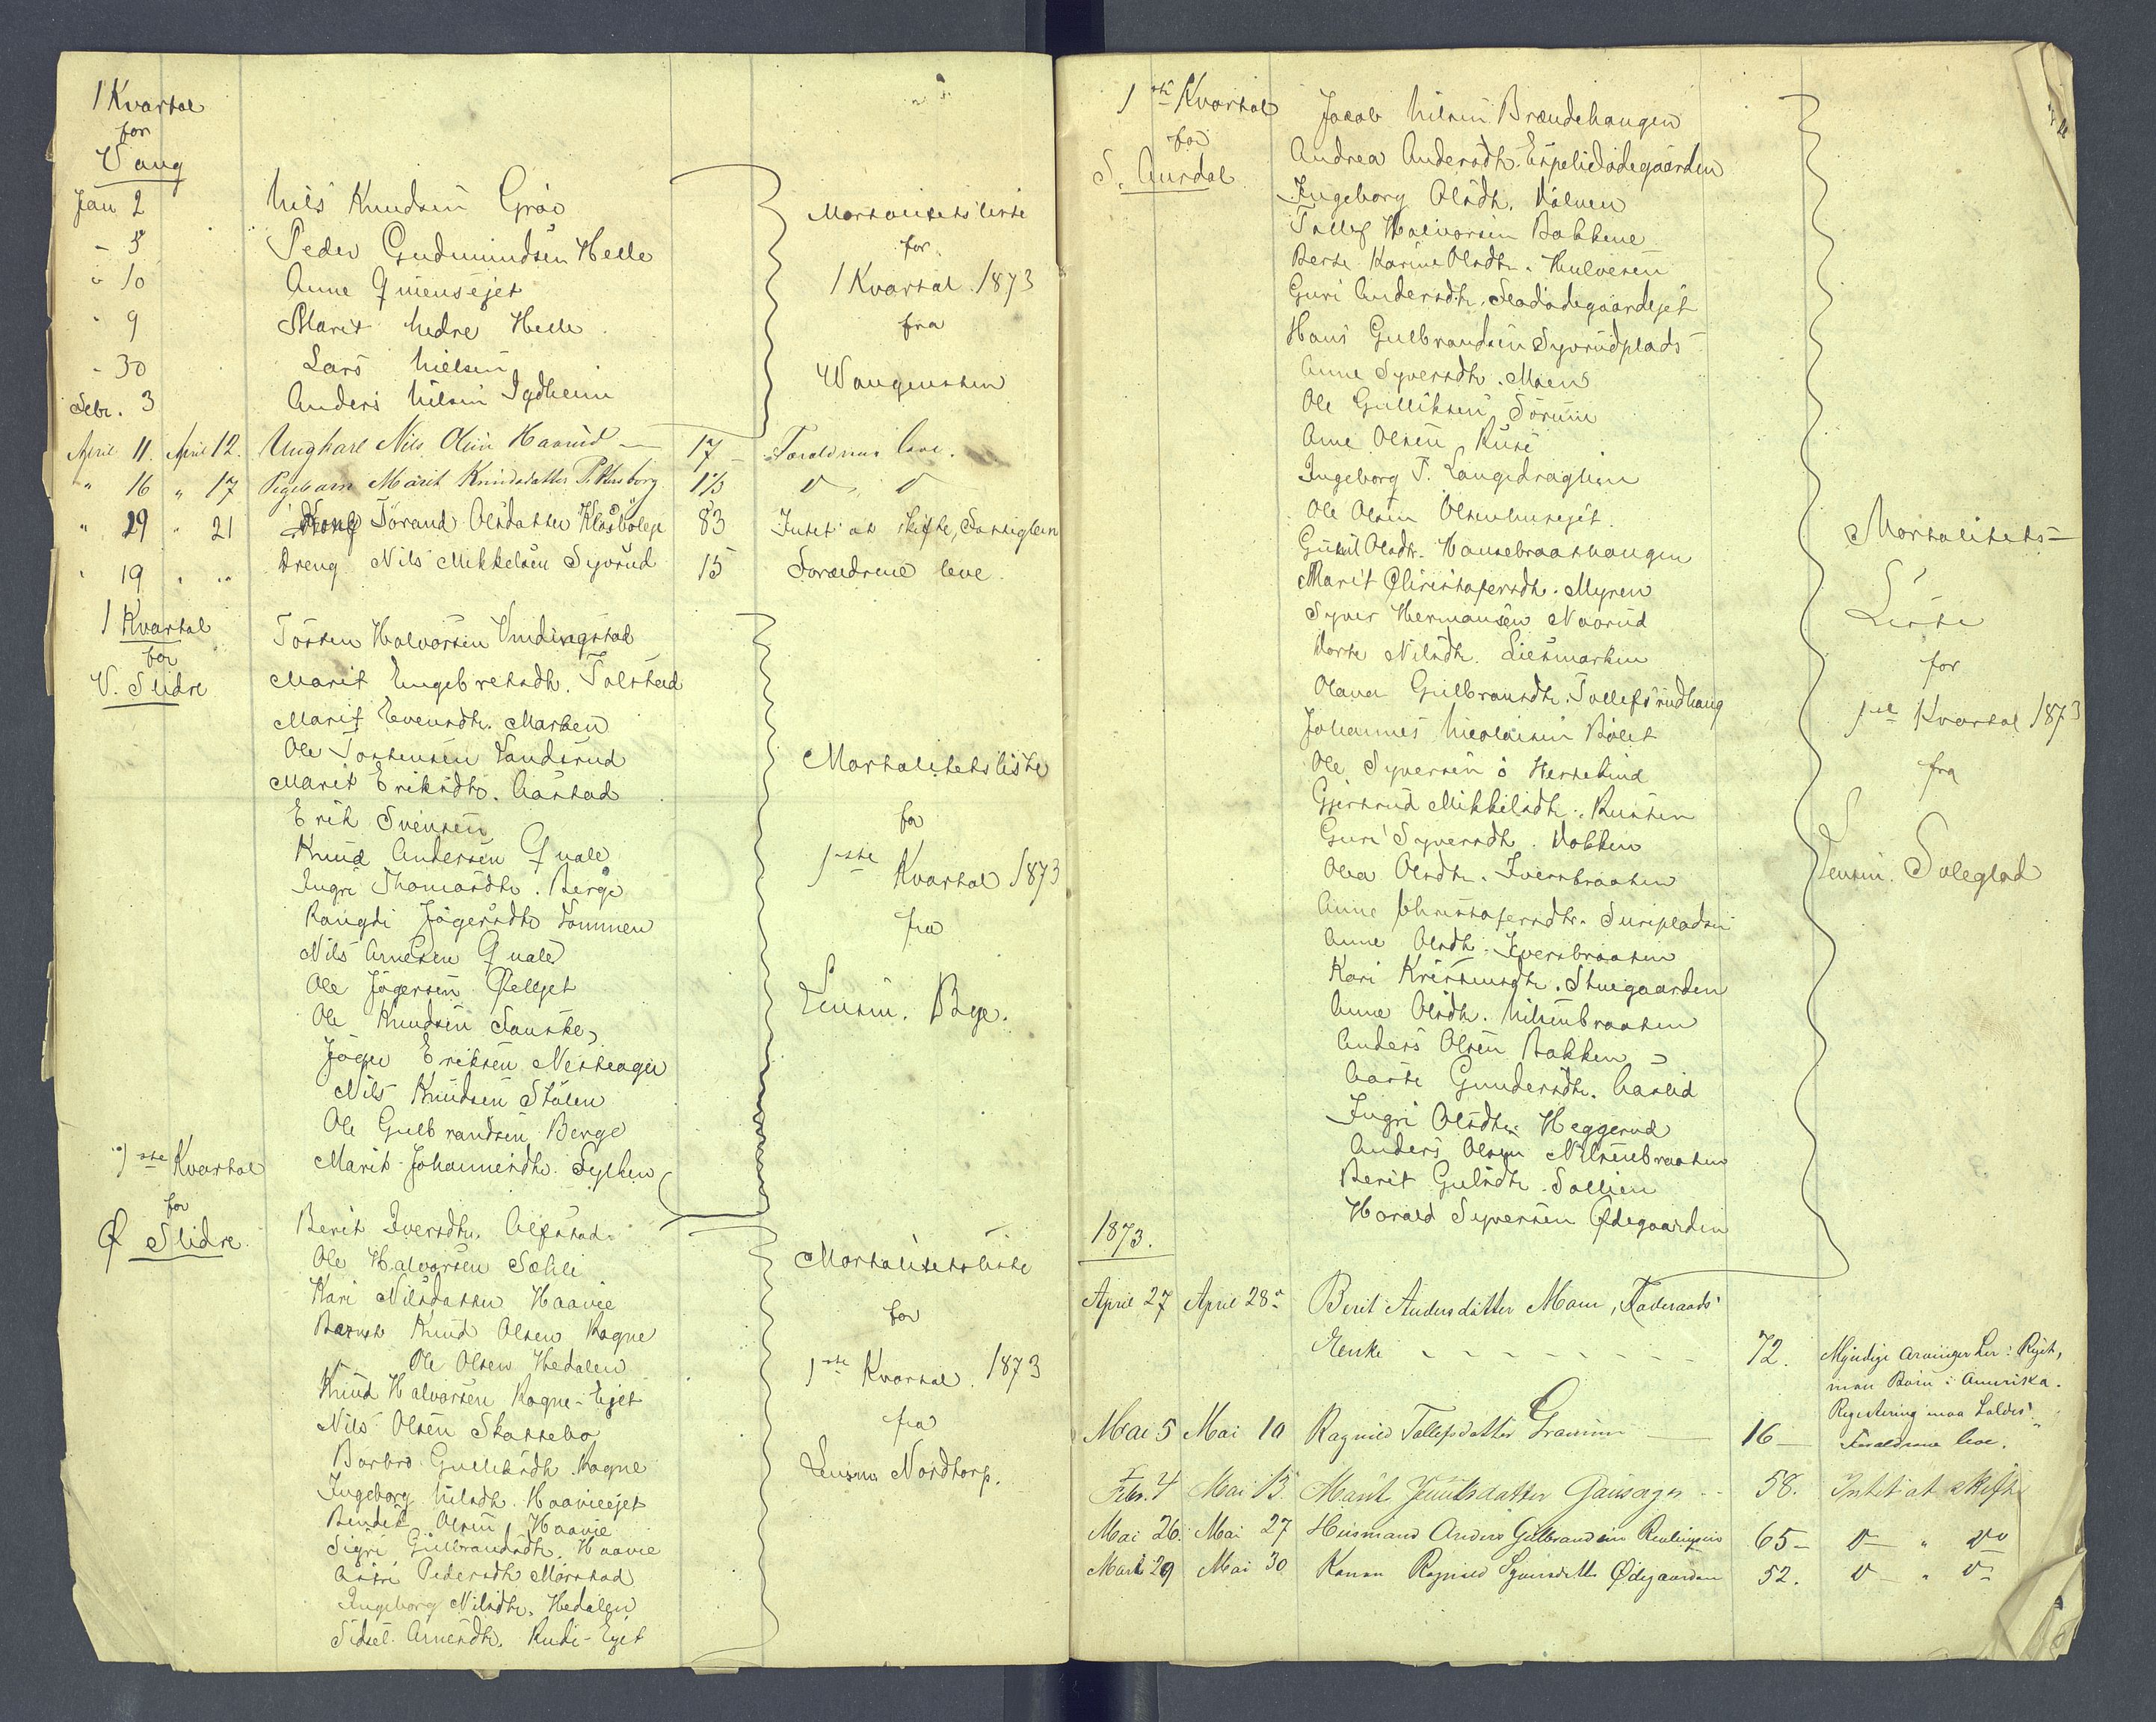 1 Kvartal
for
Vang
Jan 2 Nils Knudsen Gröv
" 5 Peder Gudmundsen Helle
" 10 Anne Quiensejet
" 9 Marit Nedre Helle
" 30 Lars Nielsen
Febr. 3 Anders Nilsen
Mortalitetsliste
for
1 Kvartal 1873
fra
Wangensten
April 11. April 12. Ungkarl Nils Olsen Haarud 17 Forældrene leve.
" 16 " 17 Pigebarn Marit Knudsdatter Pettersborg 1½ " "
" 29 " 21 Torand Olsdatter 83 Intet at skifte, Fattiglem
" 19 " " Dreng Nils Mikkelsen Syvrud 15 Forældrene leve.
1 Kvartal
for
V. Slidre
Torsten Halvorsen
Marit Engebretsdtr. Tolstad
Marit Evensdtr. Marken
Ole Torstensen
Marit Eriksdtr. Aastad
Erik Svensen
Knud Andersen Quale
Ingri Thomasdtr. Berge
Rangdi Jögersdtr Lommen
Nils Arnesen Quale
Ole Jögersen
Ole Knudsen
Jöger Eriksen
Nils Knudsen Stölen
Ole Gulbrandsen Berge
Marit Johannesdtr. Sylken
Mortalitetsliste
for
1ste Kvartal 1873
fra
Lensm. Bye.
1ste Kvartal
for
Ø Slidre
Berit Iversdtr. Alfstad
Ole Halvorsen Sæhli
Kari Nilsdatter Haavie
Barnet Knud Olsen Rogne
" Ole Olsen Hedalen
Knud Halvorsen Rogne-Ejet
Nils Olsen Skattebo
Barbro Gulliksdtr. Rogne
Ingeborg Nilsdtr. Haavieejet
Bendik Olsen Haavie
Sigri Gulbrandsdtr. Haavie
Pedersdtr Mörstad
Ingeborg Nilsdtr. Hedalen
Sidsel Arnesdtr. Rudi-Ejet
Mortalitetsliste
for
1ste Kvartal 1873
fra
Lensm. Nordtorp.
1ste Kvartal
for
S. Aurdal
Jacob Nilsen Brændehaugen
Andrea Andersdtr. Espelidødegaarden
Ingeborg Olsdtr. Volven
Tollef Halvorsen Bakkene
Berte Karine Olsdtr.
Guri Andersdtr.
Hans Gulbrandsen Syvrudplads
Anne Syversdtr. Moen
Ole Gulliksen Sörum
Arne Olsen Ruse
Ingeborg T. Langedraghen
Ole Olsen
Olsdtr.
Marit Christofersdtr. Myren
Syver Hermansen Noorud
Dorte Nilsdtr. Liesmarken
Olava Gulbrandsdtr. Tollefsrudhaug
Johannes Nicolaisen Bölet
Ole Syversen
Gjertrud Mikkelsdtr. Rusten
Guri Syversdtr. Dokken
Olea Olsdtr. Iversbraaten
Anne Christofersdtr.
Anne Olsdtr. Iversbraaten
Kari Kristensdtr. Stuegaarden
Anne Olsdtr. Nilsenbraaten
Anders Olsen Bakken
Aaste Gundersdtr. Aaslid
Ingri Olsdtr. Heggerud
Anders Olsen Nilsenbraaten
Berit Gulsdtr. Sollien
Harald Syversen Ødegaarden
Mortalitets-
Liste
for
1ste Kvartal 1873
fra
Lensm. Soleglad
1873.
April 27 April 28. Berit Andersdatter Moen, Føderaads
Enke 72. Myndige Arvinger her i Riget,
men Børn i Amerika.
Registering maa holdes.
Mai 5 Mai 10 Ragnild Tollefsdatter 16 Forældrene leve.
Febr. 4 Mai 13. Marit 58. Intet at skifte
Mai 26. Mai 27 Husmand Anders Gulbrandsen 65 " "
Mai 29 Mai 30 Konen Ragnild Syversdatter Ødegaarden 52. " "